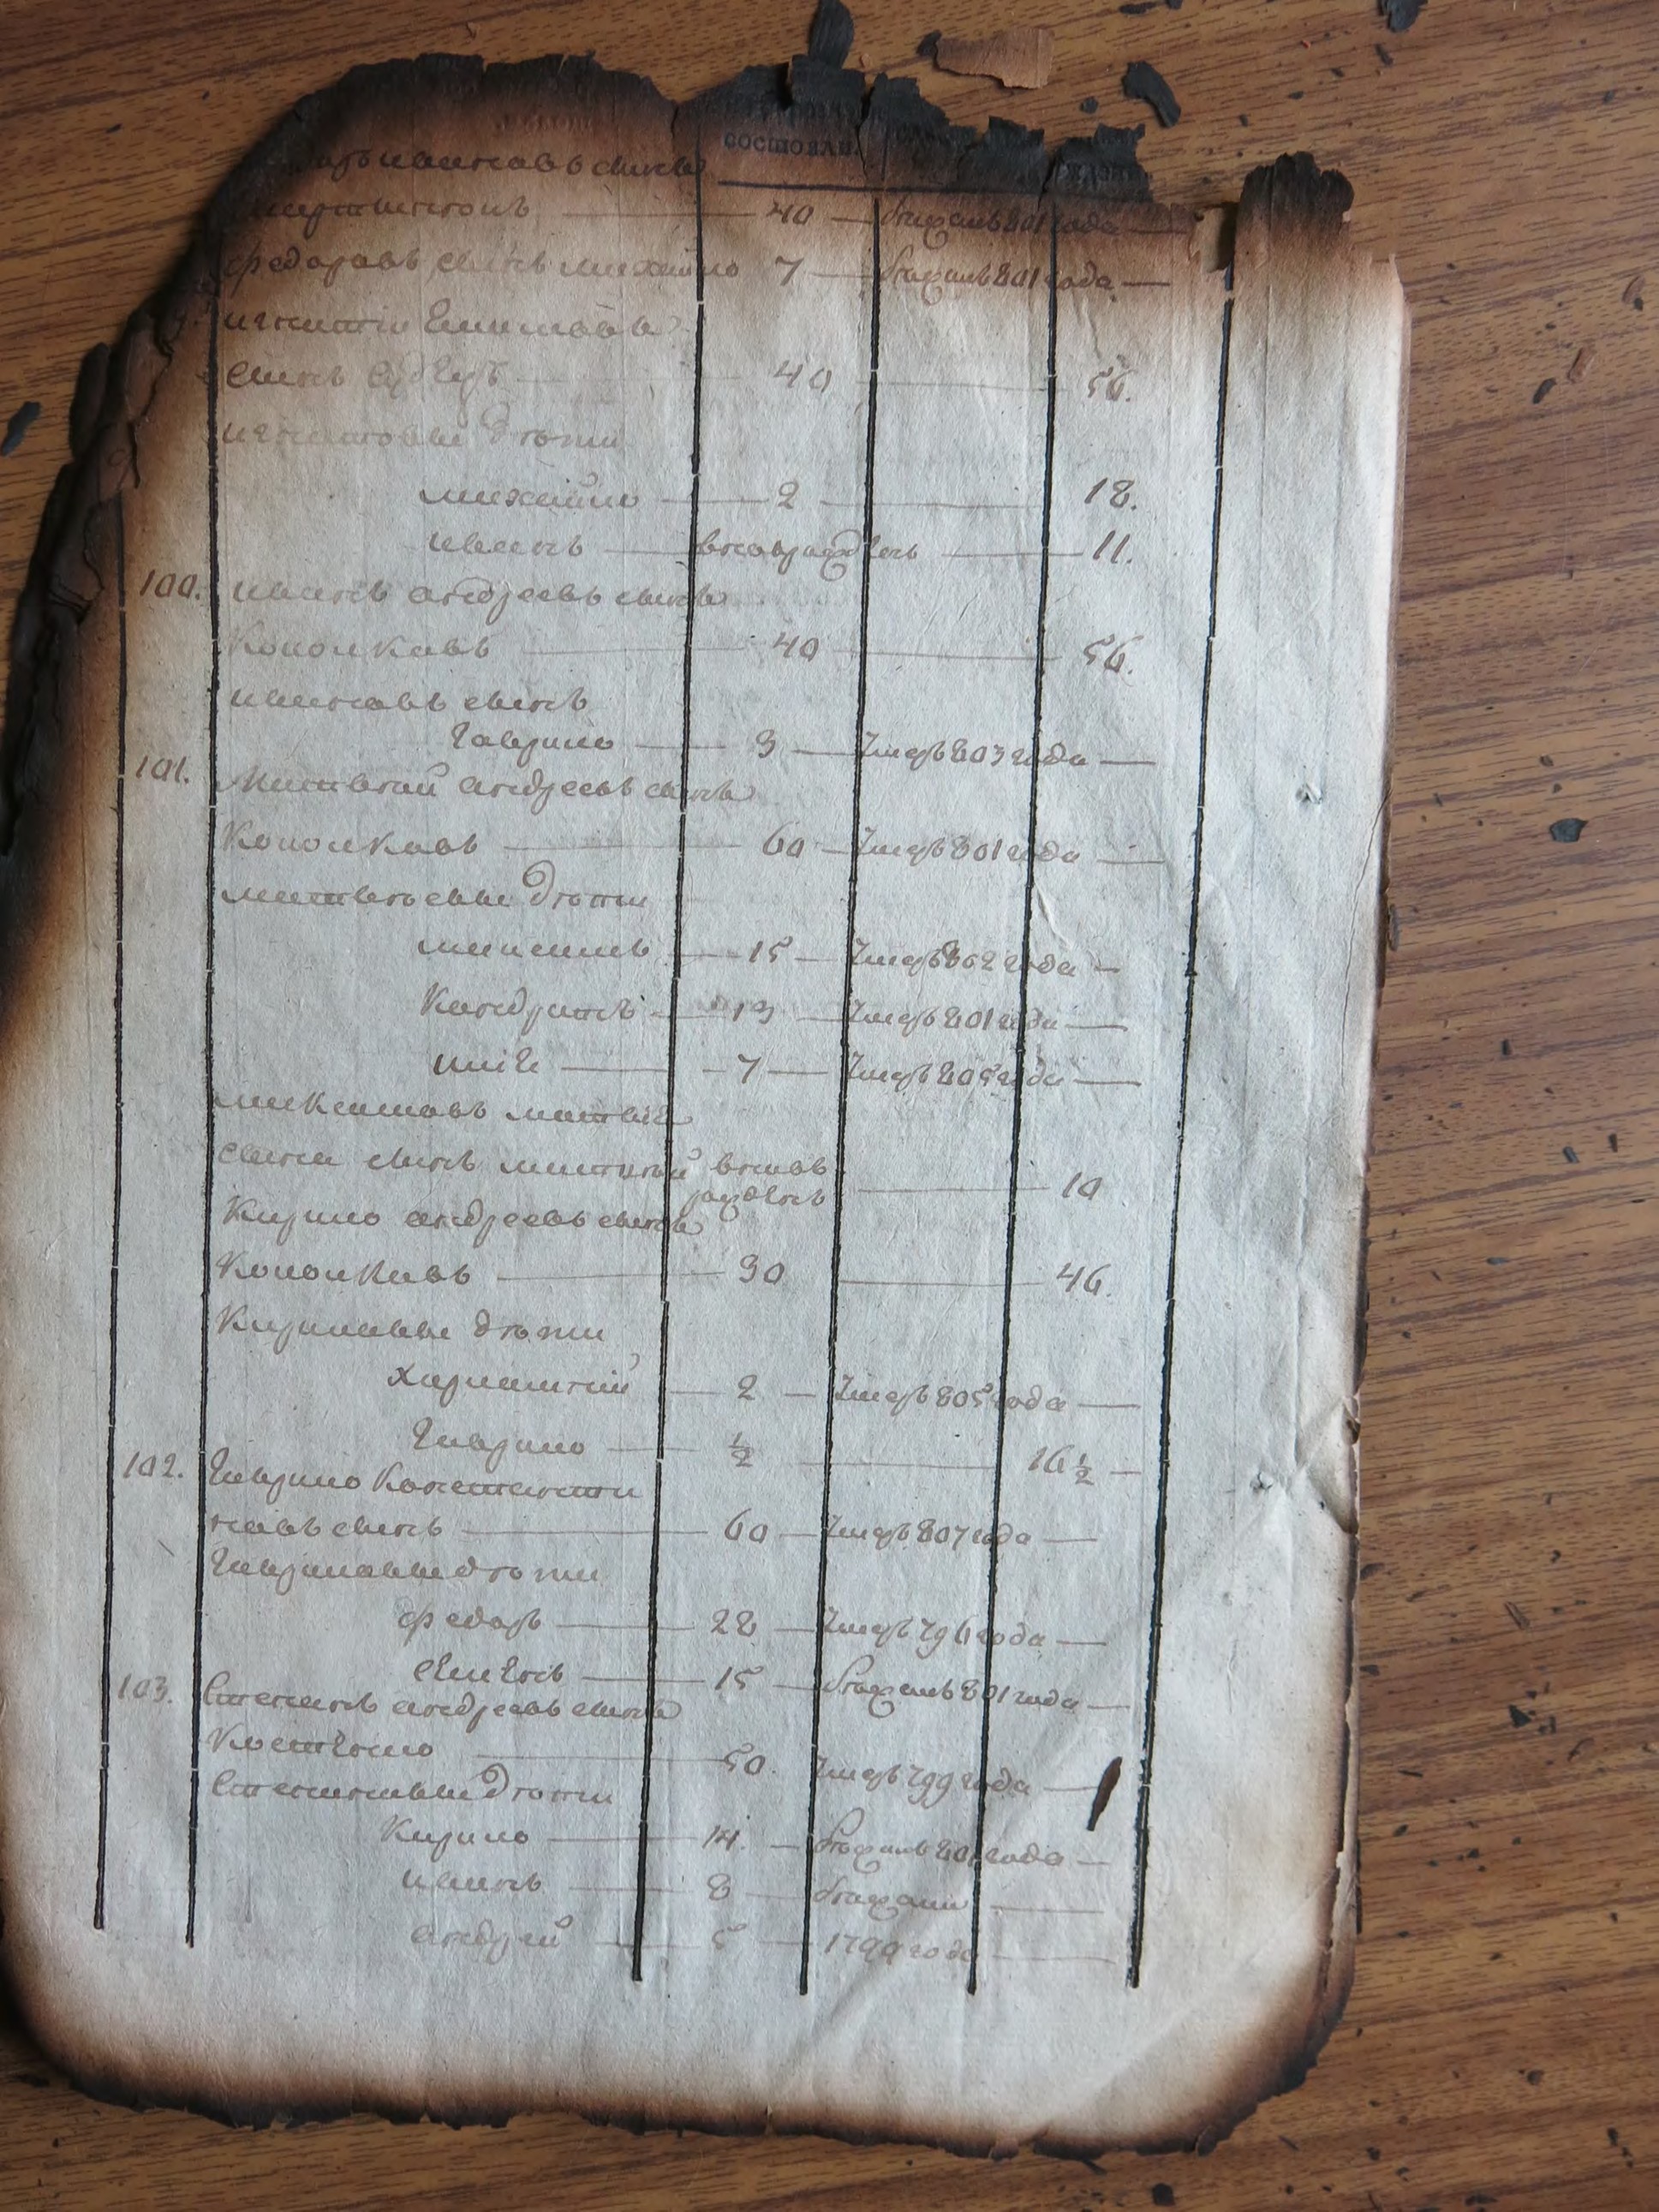 состояли
ивановъ сынъ
40 — бежалъ 801 года —
федоровъ сынъ михайло 7 — бежалъ 801 года —
игнатъи
сынъ 40 — 56.
игнатовы дѣти
михайло — 2 — 18.
иванъ — вновьрожденъ — 11.
100. иванъ андреевъ сынъ
Коноиковъ — 40 — 56.
ивановъ сынъ
гаврило — 3 — Умеръ 803 года —
101. Матвѣй андреевъ сынъ
Коноиковъ — 60 — Умеръ 801 года —
матвѣевы дѣти
максимъ — 15 — Умеръ 802 года —
Кондратъ — 13 — Умеръ 801 года —
илиѣ — 7 — Умеръ 805 года —
максимовъ матвѣ
сынъ вновь
рожденъ — 10
Кирило андреевъ сынъ
Коноиковъ — 30 — 46.
Кириловы дѣти
харлампий — 2 — Умеръ 805 года —
гаврило — ½ — 16 ½ —
102. гаврило Константи
новъ сынъ — 60 — Умеръ 807 года —
гавриловы дѣти
федоръ — 28 — Умеръ 796 года —
семенъ — 15 — бежалъ 801 года —
103. Степанъ андреевъ сынъ
50. Умеръ 799 года —
Степановы дѣти
Кирило — 14. — бежалъ 801 года —
иванъ — 8 — бежали —
андрей — 5 — 1799 года —